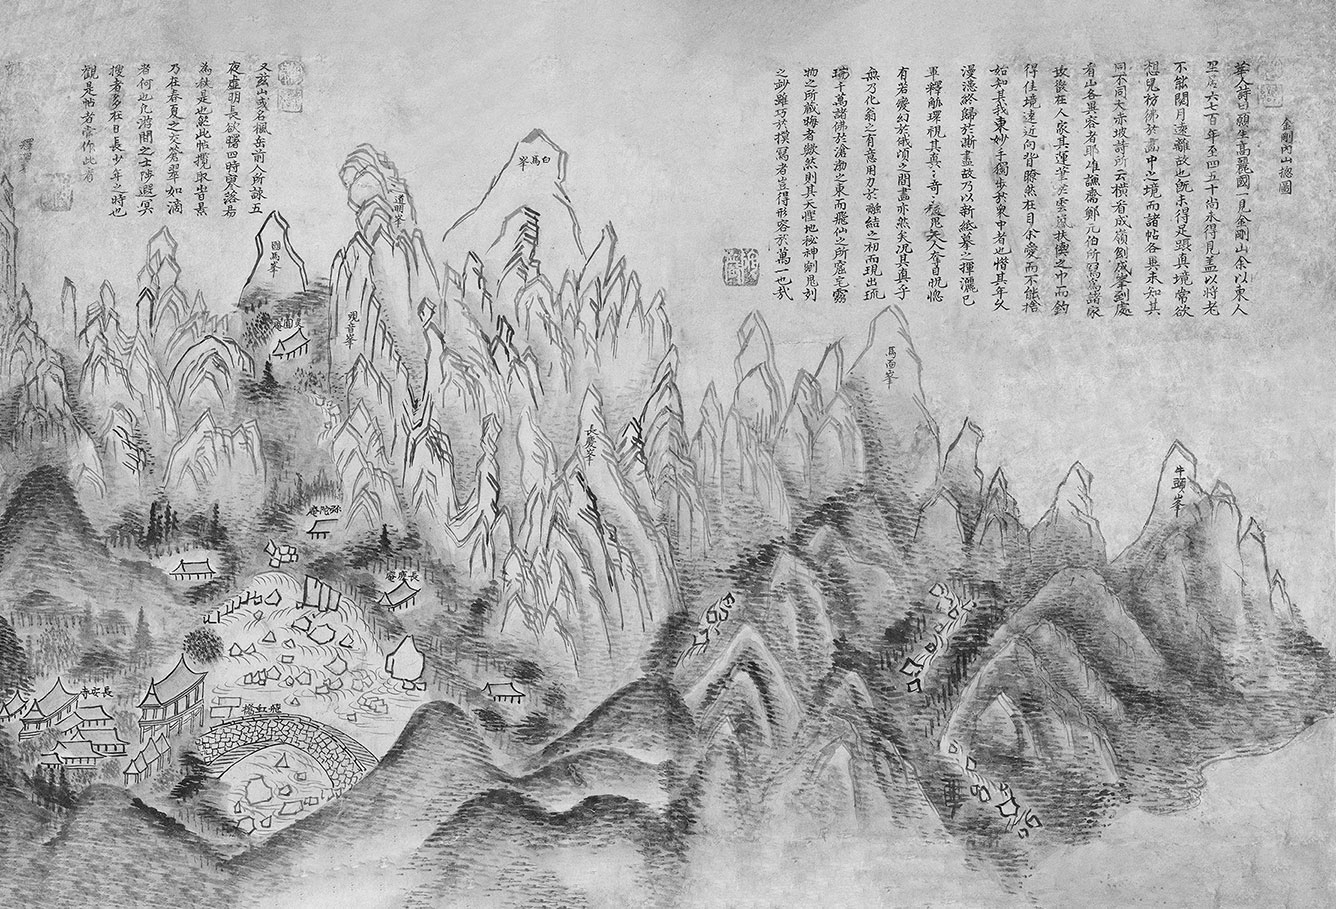 金剛內山摠圖
華人詩曰願生高麗國一見金剛山余以東人
居六七百年至四五十尚未得見盖以將老
不能閱月遠離故也旣未得足躡真境常欲
想見彷彿於畵中之境而諸帖各異未知其
同不同大亦坡詩所云橫看成嶺側成峯到處
看山各異容者耶唯謙齋鄭元伯所寫爲諸家
故散在人家其運筆於雲嵐之中而鈞
得佳境遠近向背瞭然在目余愛而不能捨
始知其我東妙手獨步於衆中者也惜其年久
漫漶終歸於漸盡故乃以新絵摹之揮灑已
畢釋觚環視其真奇使人奪目恍惚
有若變幻於俄頃之間畵亦然矣况其真乎
無乃化翁之有意用力於融結之初而現出琉
璃千萬諸佛於滄渤之東而飛仙之所窟宅靈
物之所藏晦者歟然則其天慳地秘神剜鬼刻
之玅雖巧於摸寫者豈得形容於萬一也哉
馬面峯
牛頭峯
白馬峯
道明峯
觀音峯
長慶峯
圓馬峯
靈圓庵
弥陀庵
長慶庵
飛虹橋
長安寺
又玆山或名楓岳前人所詠五
夜虛明長欲曙四時寥落若
爲秋是也然此帖攬取皆景
乃在春夏之交蒼翠如滴
者何也凡游閒之士陟遐冥
搜者多在日長少年之時也
觀是帖者當作此看